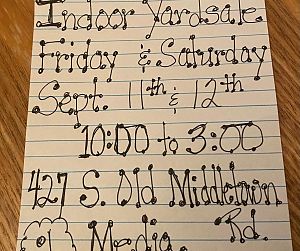 Indoor Yardsale
Friday & Saturday
Sept. 11th & 12th
10:00 to 3:00
427 S. Old Middletown
Media, Rd.